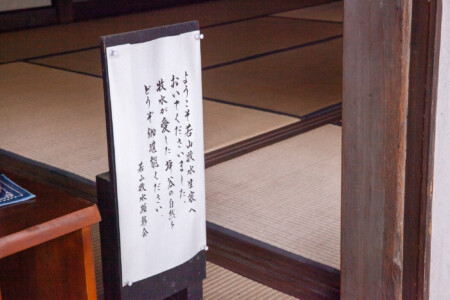 ようこそ若山牧水生家へ
おいでくださいました。
牧水が愛した坪谷の自然を
どうぞ御堪能ください
若山牧水顕彰会